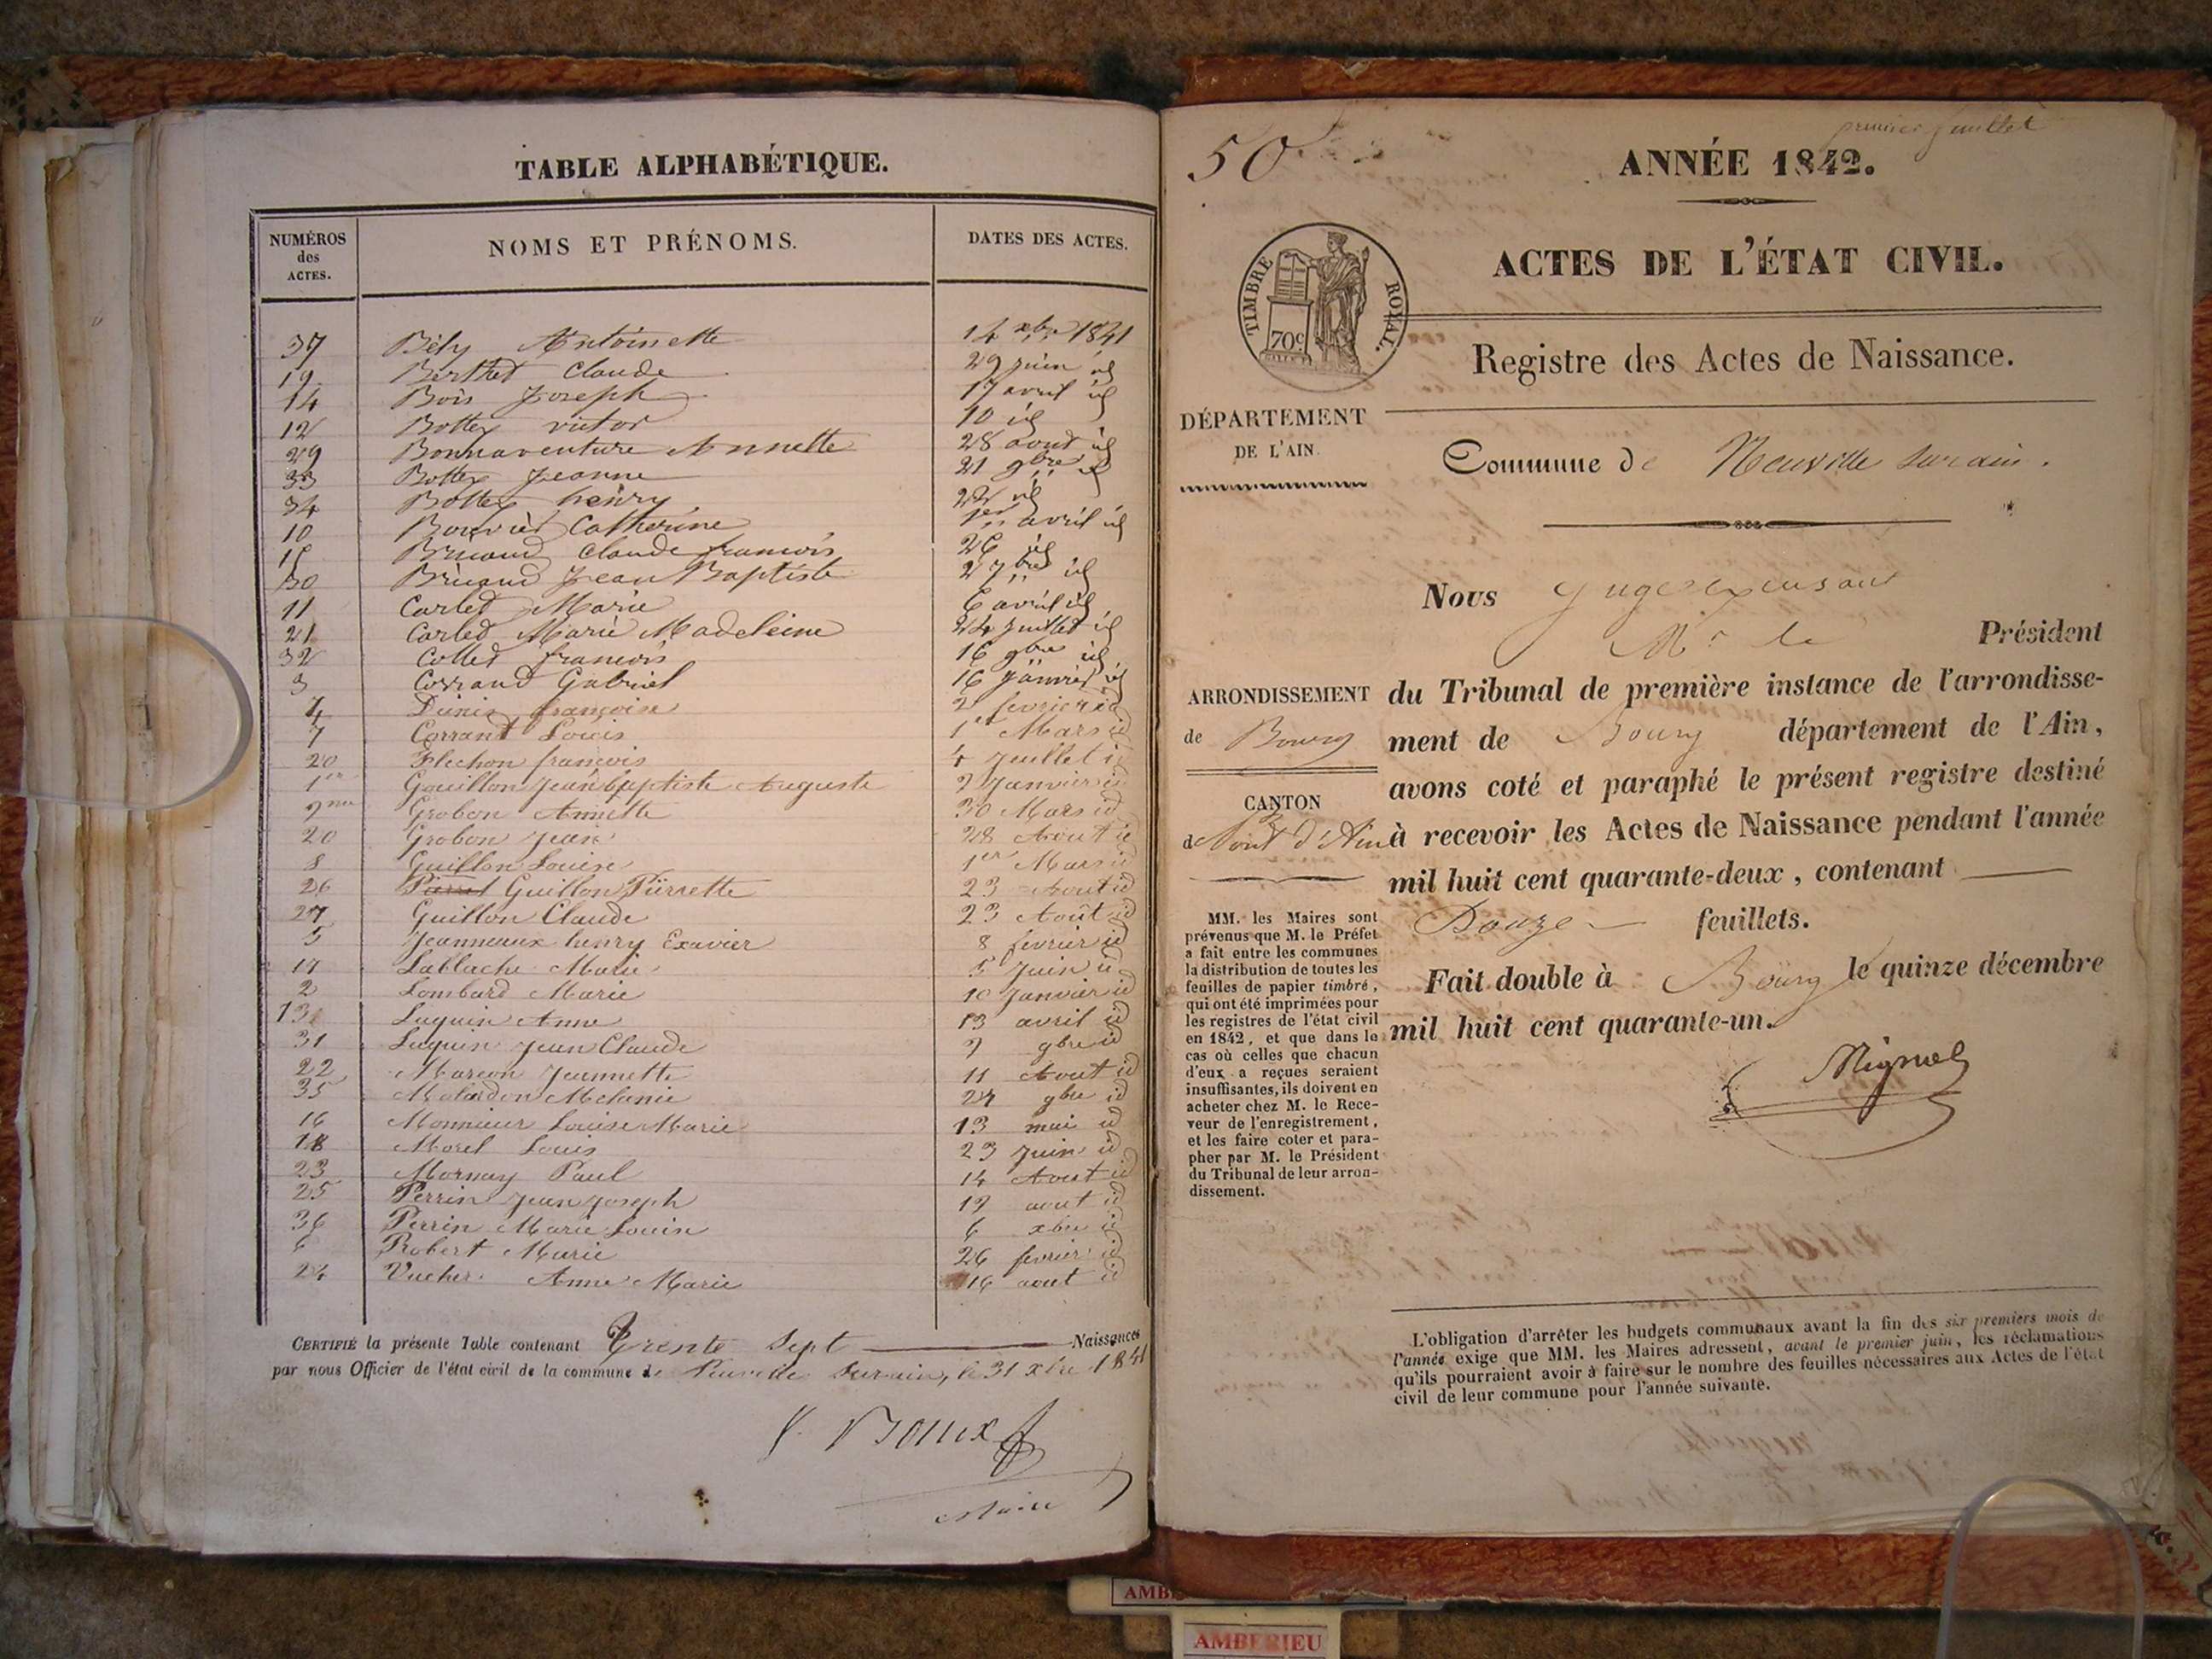 TABLE ALPHABÉTIQUE.
NUMÉROS des ACTES. NOMS ET PRÉNOMS. DATES DES ACTES.
37 Bély Antoinette 14 xbre 1841
19 Berthet Claude 29 juin id
14 Bois Joseph 17 avril id
12 Bottex victor 10 id
29 Bonnaventure Annette 28 aout id
33 Bottex Jeanne 21 9bre id
34 Bottex henry 22 id
10 Bouvier Catherine 1er avril id
15 Brucand Claude francois 26 id
30 Brucand Jean Baptiste 2 7bre id
11 Carlet Marie 6 avril id
21 Carlet Marie Madeleine 24 Juillet id
32 Collet francois 16 9bre id
3 Corrand Gabriel 16 Janvier id
4 françoise 2 fevrier id
7 Corrant Louis 1er Mars id
20 Flechon françois 4 Juillet id
1er Gouillon Jean baptiste Auguste 2 Janvier id
9me Grobon Annette 30 Mars id
20 Grobon Jean 28 Aout id
8 Guillon Louise 1er Mars id
26 Guillon Pierrette 23 Aout id
27 Guillon Claude 23 Août id
5 Jeanneaux henry Exavier 8 fevrier id
17 Lablache Marie 5 Juin id
2 Lombard Marie 10 Janvier id
13 Luquin Anne 13 avril id
31 Luquin Jean Claude 7 9bre id
22 Marcon Jeannette 11 Aout id
35 Melanie 24 9bre id
16 Monnieur Louise Marie 13 mai id
18 Morel Louis 23 Juin id
23 Mornay Paul 14 Aout id
25 Perrin Jean Joseph 19 aout id
36 Perrin Marie Louise 6 xbre id
6 Robert Marie 26 fevrier id
24 Vucher Anne Marie 16 aout id
CERTIFIÉ la présente Table contenant Trente Sept Naissances
par nous Officier de l'état civil de la commune de Neuville sur ain, le 31 xbre 1841
Maire
50
premier feuillet
ANNÉE 1842.
TIMBRE ROYAL.
70c
ACTES DE L'ÉTAT CIVIL.
Registre des Actes de Naissance.
DÉPARTEMENT
DE L'AIN.
Commune de Neuville sur ain.
Nous Juge
Mr le Président
ARRONDISSEMENT
de Bourg
du Tribunal de première instance de l'arrondisse-
ment de Bourg département de l'Ain,
avons coté et paraphé le présent registre destiné
à recevoir les Actes de Naissance pendant l'année
mil huit cent quarante-deux, contenant
Douze feuillets.
Fait double à Bourg le quinze décembre
mil huit cent quarante-un.
CANTON
de Pont d'Ain
MM. les Maires sont
prévenus que M. le Préfet
a fait entre les communes
la distribution de toutes les
feuilles de papier timbré,
qui ont été imprimées pour
les registres de l'état civil
en 1842, et que dans le
cas où celles que chacun
d'eux a reçues seraient
insuffisantes, ils doivent en
acheter chez M. le Rece-
veur de l'enregistrement,
et les faire coter et para-
pher par M. le Président
du Tribunal de leur arron-
dissement.
L'obligation d'arrêter les budgets communaux avant la fin des six premiers mois de
l'année exige que MM. les Maires adressent, avant le premier juin, les réclamations
qu'ils pourraient avoir à faire sur le nombre des feuilles nécessaires aux Actes de l'état
civil de leur commune pour l'année suivante.
AMB
AMBERIEU